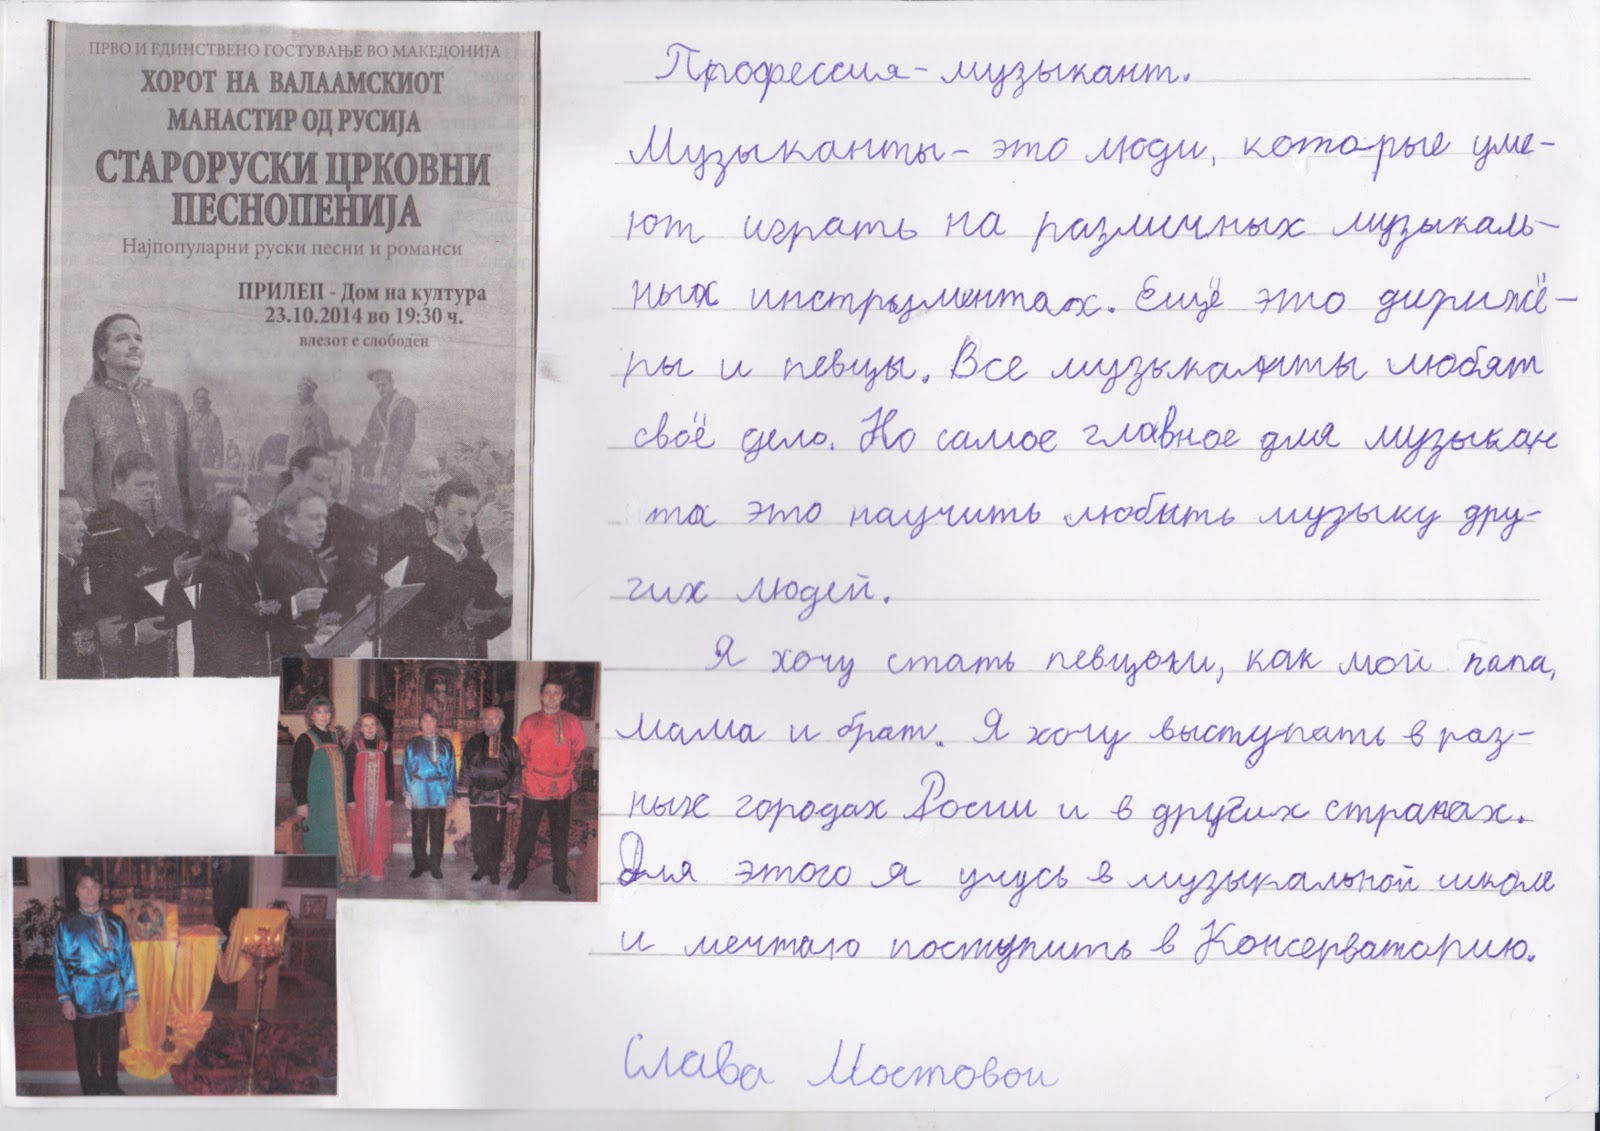 ПРВО И ЕДИНСТВЕНО ГОСТУВАЊЕ ВО МАКЕДОНИЈА
ХОРОТ НА ВАЛААМСКИОТ
МАНАСТИР ОД РУСИЈА
СТАРОРУСКИ ЦРКОВНИ
ПЕСНОПЕНИЈА
Најпопуларни руски песни и романси
ПРИЛЕП - Дом на култура
23.10.2014 во 19:30 ч.
влезот е слободен
Профессия - музыкант.
Музыканты - это люди, которые уме-
ют играть на различных музыкаль-
ных инструментах. Ещё это дирижё-
ры и певцы. Все музыканты любят
своё дело. Но самое главное для музыкан
та это научить любить музыку дру-
гих людей.
Я хочу стать певцом, как мой папа,
мама и брат. Я хочу выступать в раз-
ных городах Росии и в других странах.
Для этого я учусь в музыкальной школе
и мечтаю поступить в Консерваторию.
Слава Мостовои